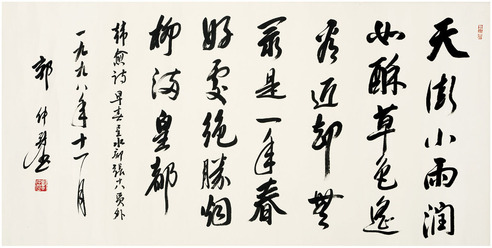 天街小雨润
如酥草色遥
看近却無
最是一年春
好處绝勝烟
柳满皇都
韩愈诗 早春呈水部張十八员外
一九九八年十一月
郭仲选